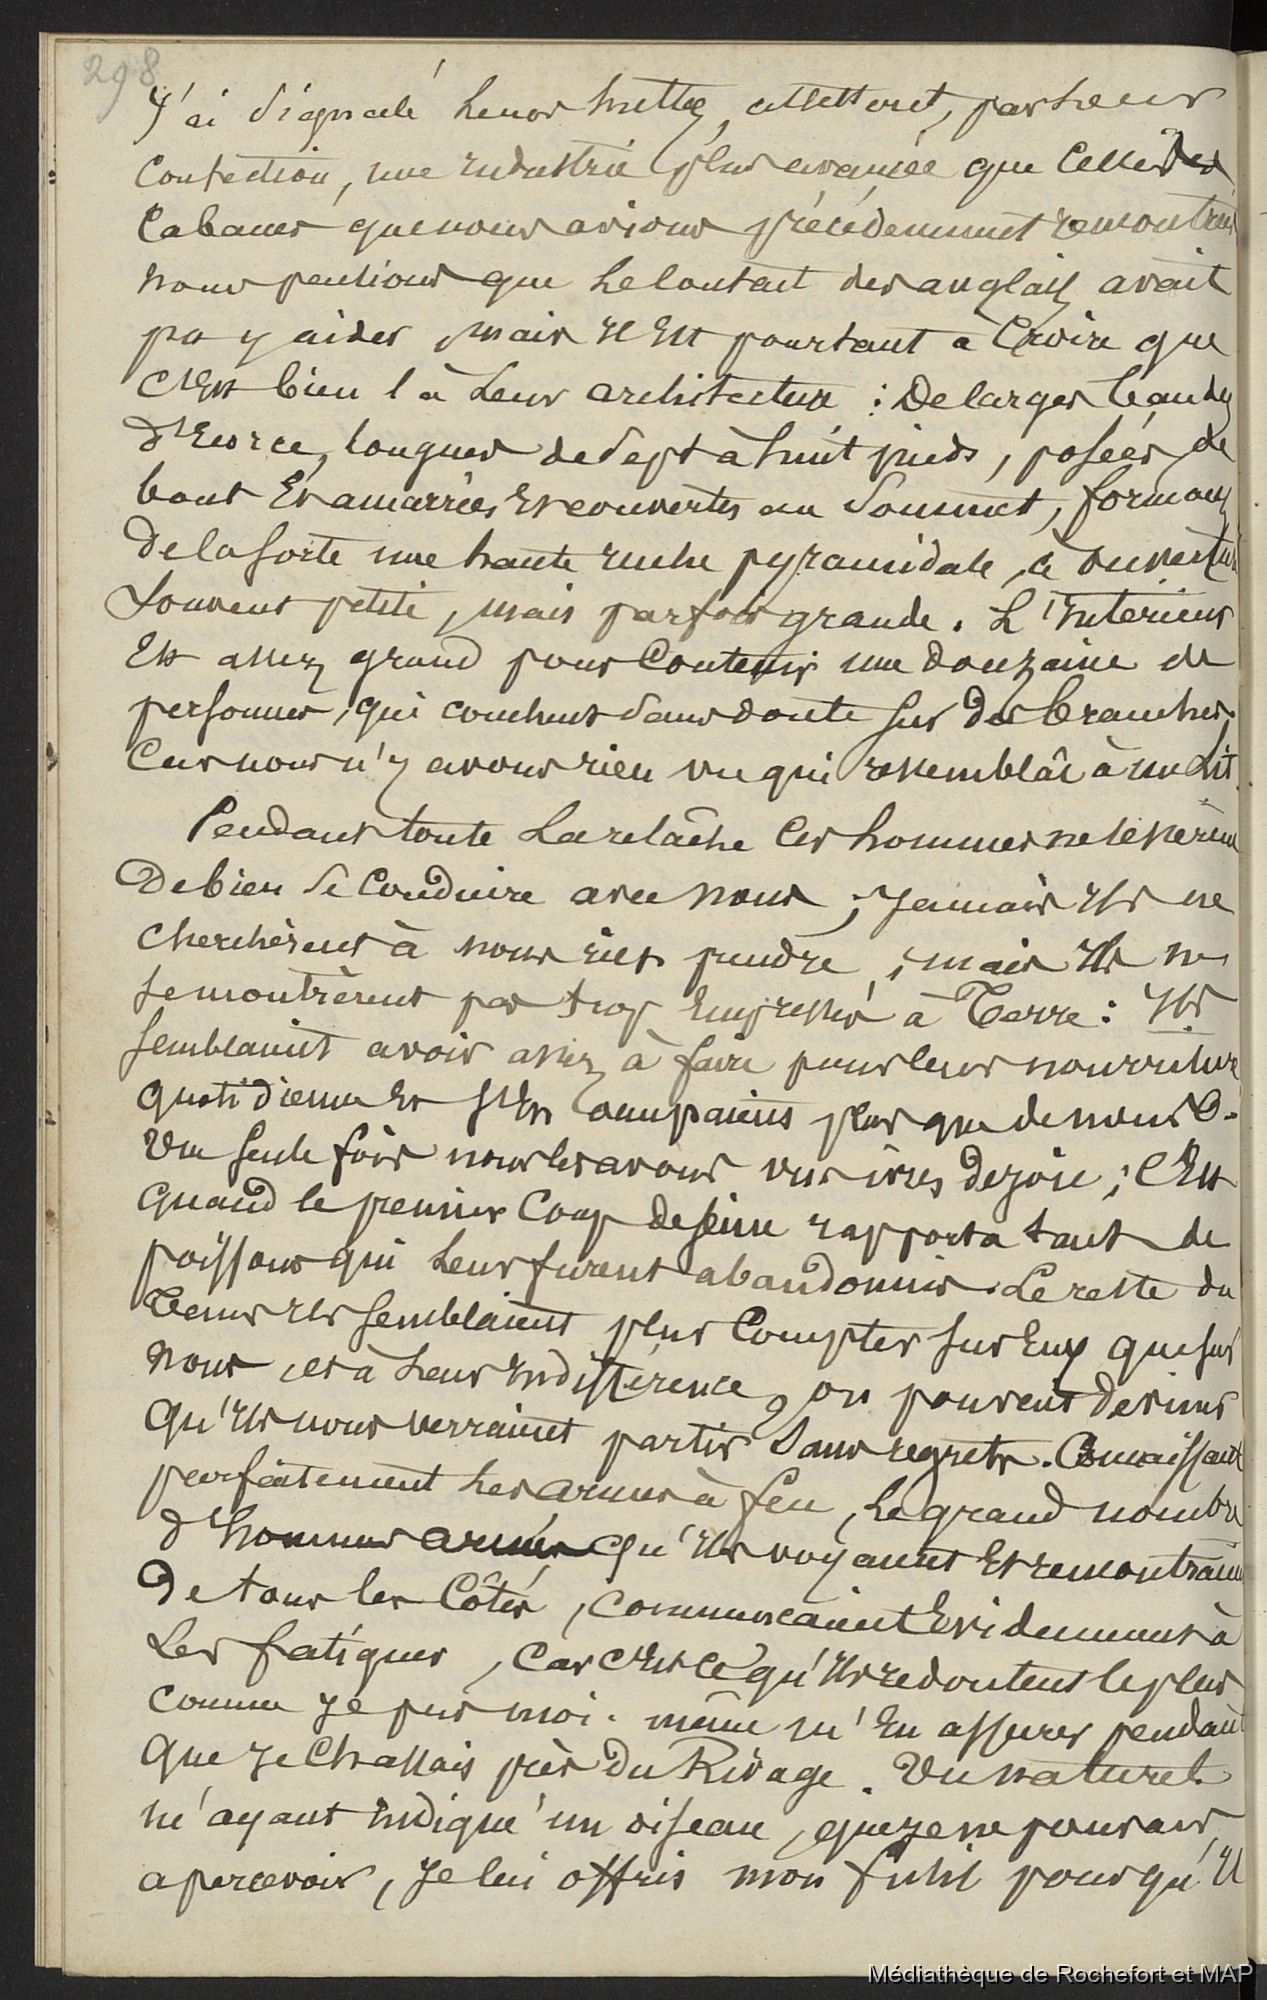 298
J'ai signalé leurs huttes, attestent, par leur
confection, une industrie plus avancée que celle des
cabanes que nous avions précédemment rencontrées
nous pensions que le contact des anglais avait
pu y aider, mais il est pourtant a croire que
c'est bien là leur architecture : De larges bandes
d'écorce, longues de sept à huit pieds, posées de
bout et amarrées et couvertes au sommet, formant
de la sorte une haute ruche pyramidale, à ouverture
souvent petite, mais parfois grande. L'intérieur
est assez grand pour contenir une douzaine de
personnes, qui couchent sans doute sur des branches,
car nous n'y avons rien vu qui ressemblât à un lit.
Pendant toute la relâche ces hommes ne
de bien se conduire avec nous ; jamais ils ne
cherchèrent à nous rien prendre ; mais ils ne
se montrèrent pas trop empressés à terre : ils
semblaient avoir assez à faire pour leur nourriture
quotidienne et s'en occupaient plus que de nous.
Une seule fois nous les avons vus ivres de joie ; c'est
quand le premier coup de seine rapporta tant de
poissons qui leur furent abandonnés. Le reste du
tems ils semblaient plus compter sur eux que sur
nous et à leur indifférence, on pouvait deviner
qu'ils nous verraient partir sans regrets. Connaissant
parfaitement les armes à feu, le grand nombre
d'hommes armés qu'ils voyaient et rencontraient
de tous les côtés, commencaient évidemment à
les fatiguer, car c'est ce qu'ils redoutent le plus
comme je pus moi-même m'en assurer pendant
que je chassais près du Rivage. Un naturel
m'ayant indiqué un oiseau, que je ne pouvais
apercevoir, je lui offris mon fusil pour qu'il
Médiathèque de Rochefort et MAP